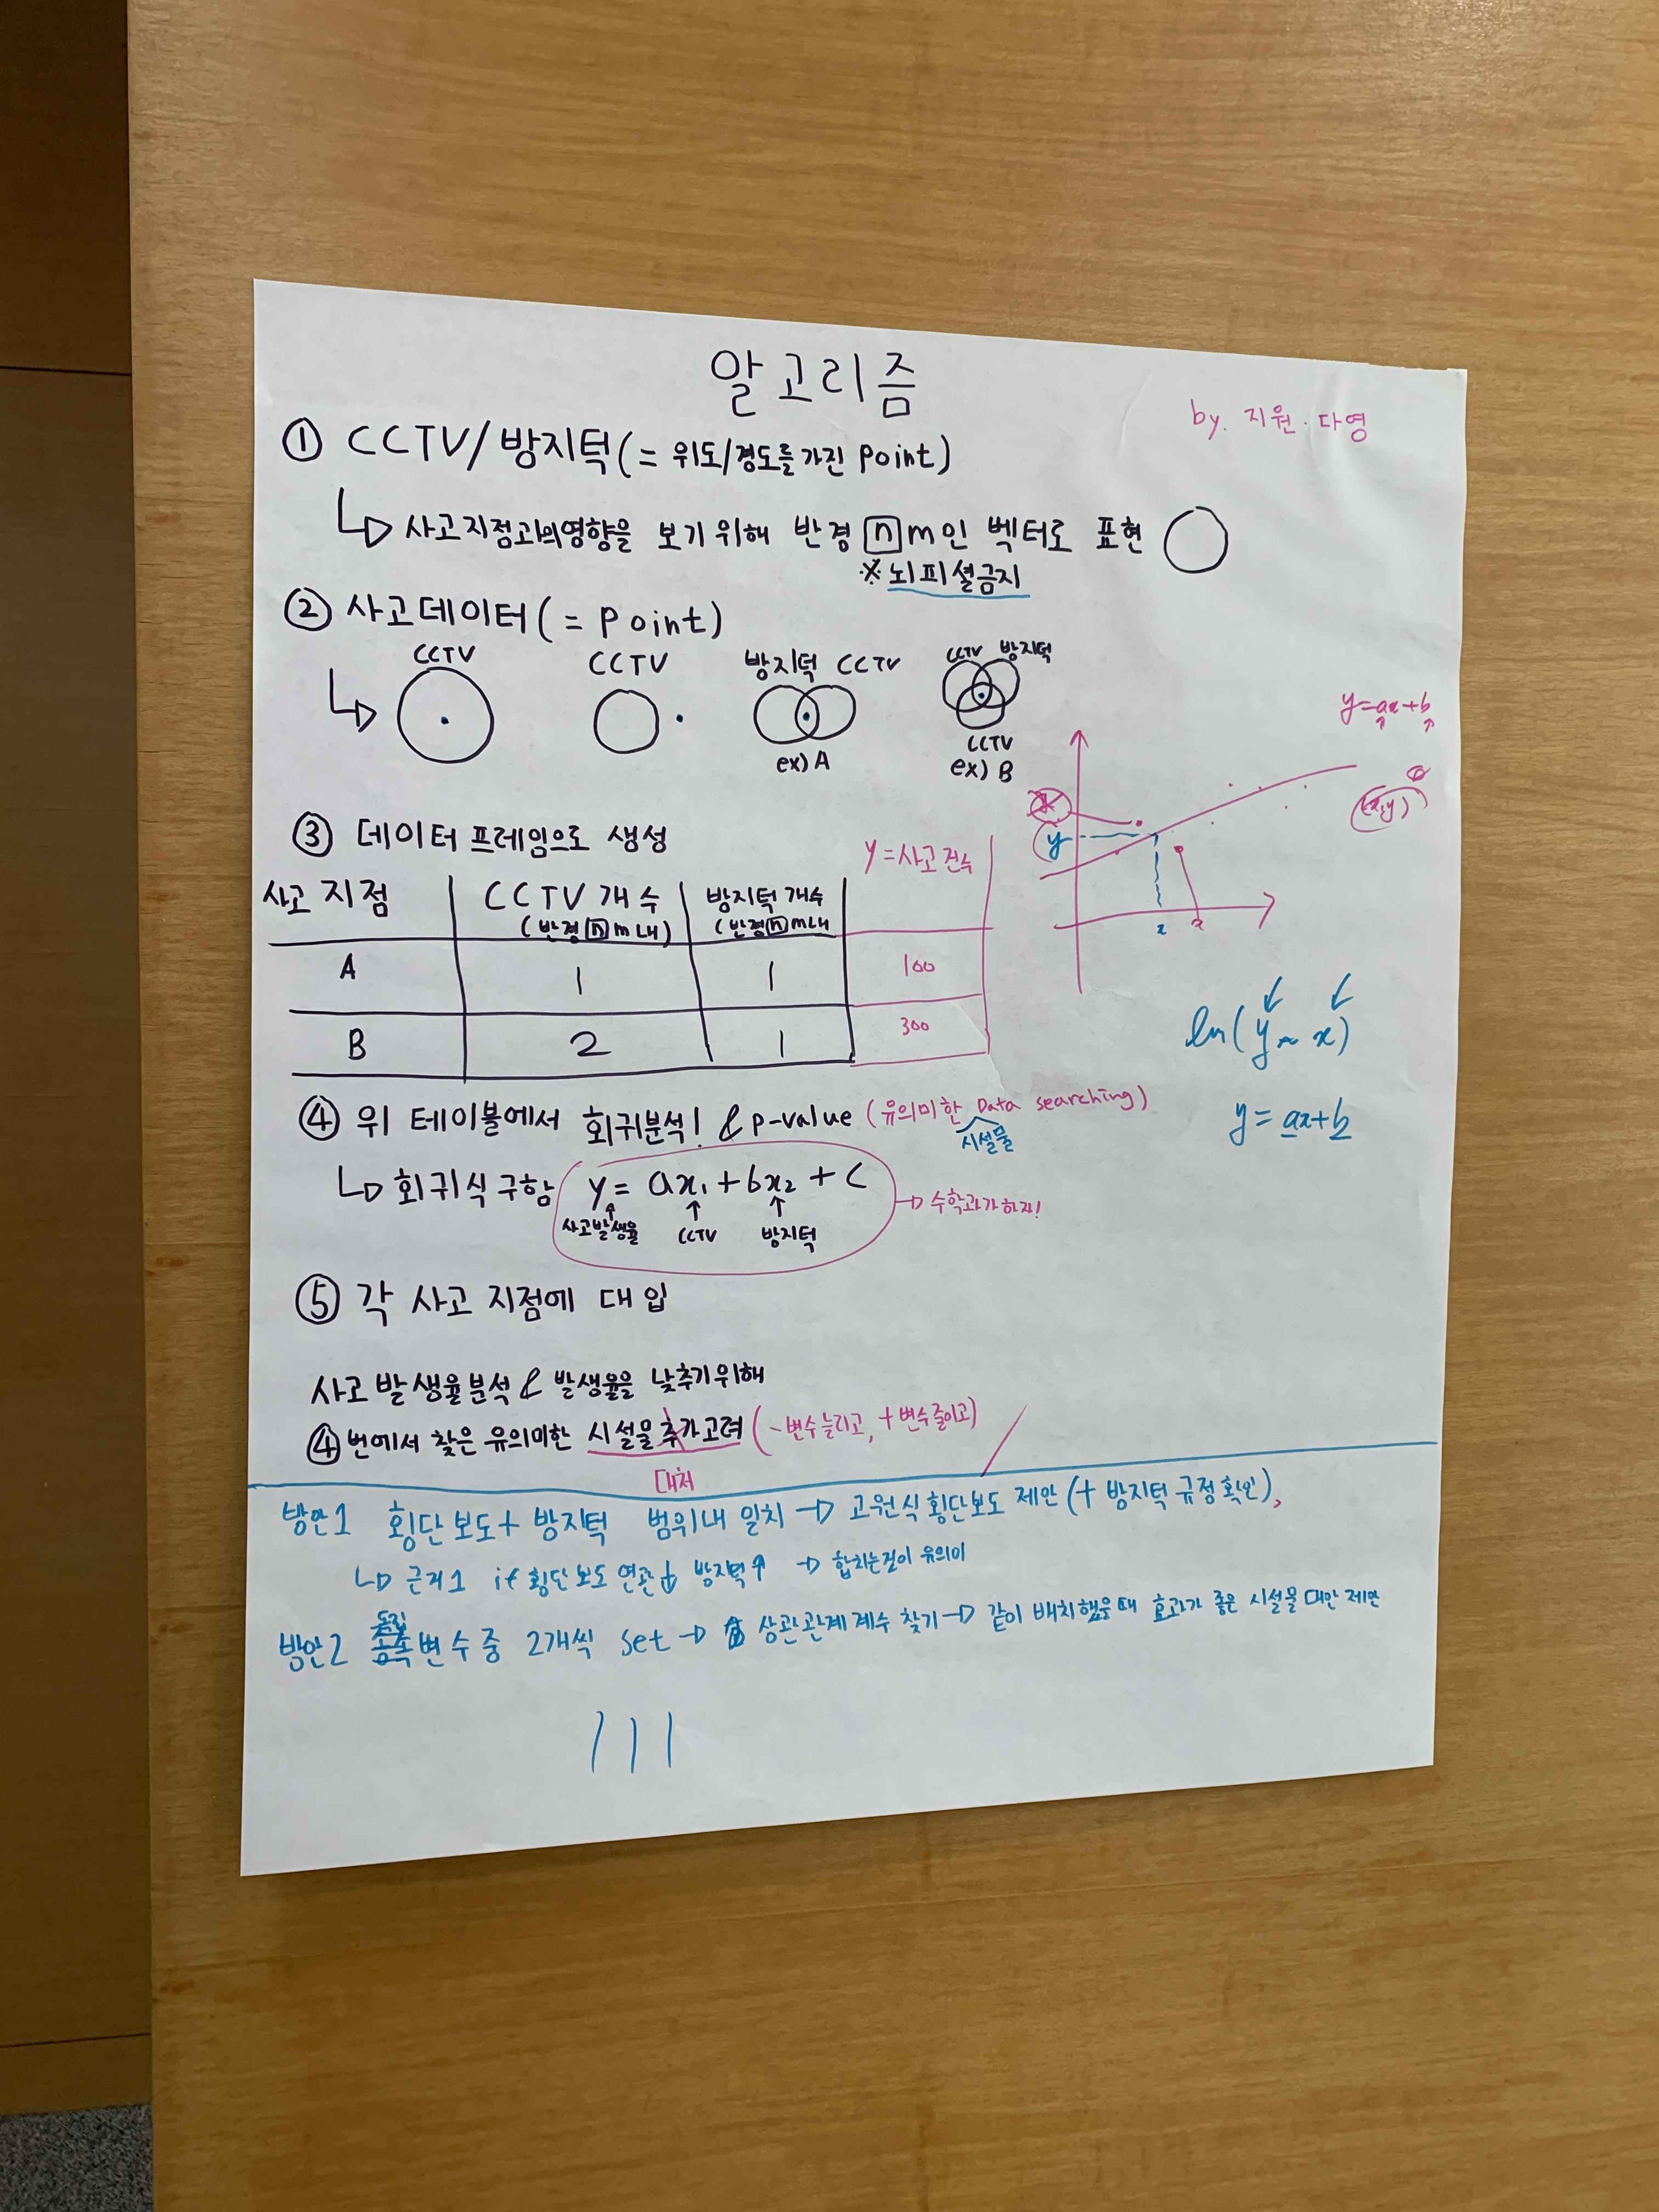 알고리즘
by. 지원·다영
① CCTV/방지턱(= 위도/경도를 가진 point)
↳ 사고지점과의영향을 보기위해 반경 [n]m인 벡터로 표현
※뇌피셜금지
② 사고데이터(= Point)
CCTV
CCTV
방지턱 CCTV
CCTV 방지턱
CCTV
ex) A
ex) B
y=ax+b
(x,y)
y
③ 데이터프레임으로 생성
y=사고건수
사고지점 CCTV 개수 (반경[n]m내) 방지턱 개수 (반경[n]m내
A 1 1 100
B 2 1 300
ln(y~x)
y=ax+b
④ 위 테이블에서 회귀분석! & p-value (유의미한 Data searching)
시설물
↳ 회귀식 구함 y= ax₁+bx₂+c → 수학과가하자!
↑ 사고발생율 ↑ CCTV ↑ 방지턱
⑤ 각 사고 지점에 대입
사고발생율분석 & 발생율을 낮추기위해
④번에서 찾은 유의미한 시설물추가고려 (-변수늘리고, +변수줄이고)
대처
방안1 횡단보도+ 방지턱 범위내 일치 → 고원식횡단보도 제안(+ 방지턱 규정확인),
↳ 근거1 if 횡단보도 연관↓ 방지턱↑ → 합치는것이 유의미
독립
방안2 종속변수중 2개씩 set → 상관관계계수 찾기→ 같이 배치했을때 효과가 좋은 시설물 대안제안